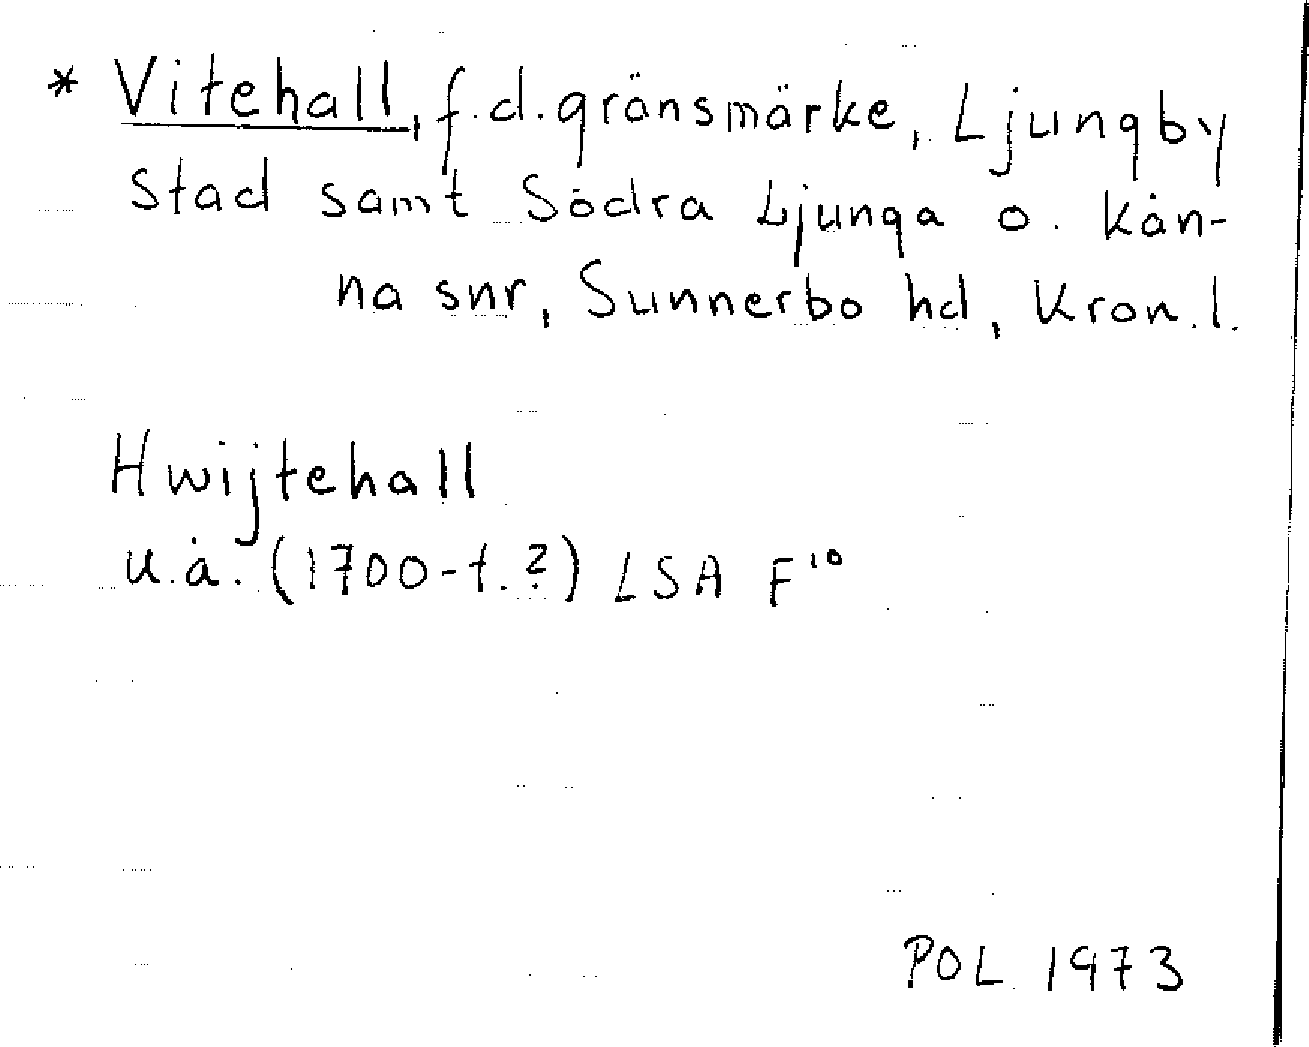 * Vitehall, f.d. gränsmärke, Ljungby
stad samt Södra Ljunga o. Kån-
na snr, Sunnerbo hd, Kron. l.
Hwijtehall
u.å. (1700-t.?) LSA F¹⁰
POL 1973